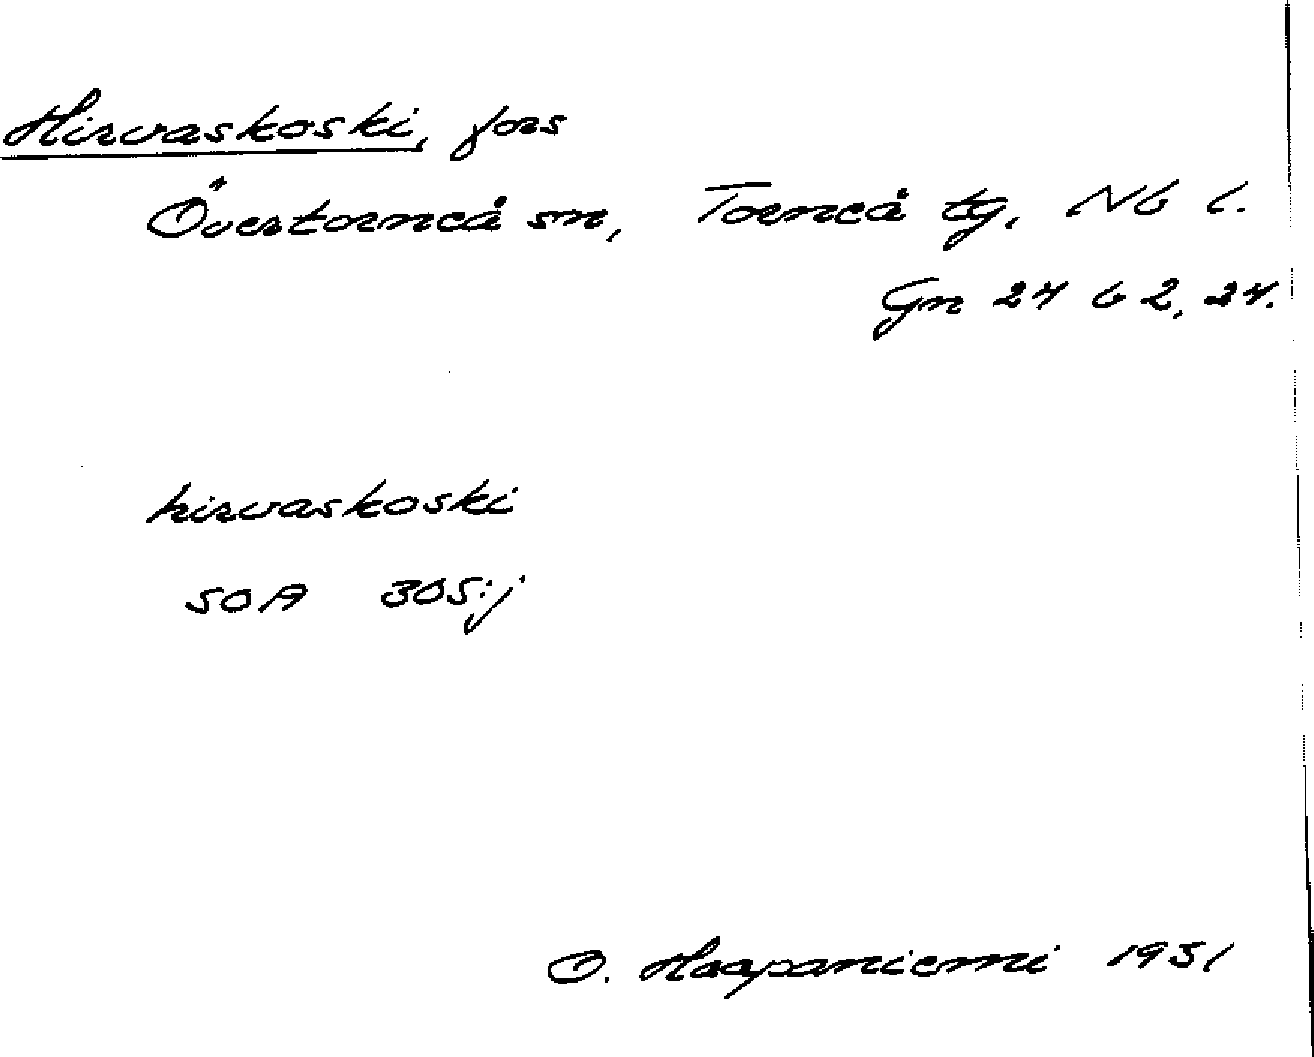 Hirvaskoski, fors
Övertorneå sn, Torneå tg, Nb l.
Gn 24 b 2, 24.
hirvaskoski
SOA 305:j
O. Haapaniemi 1931